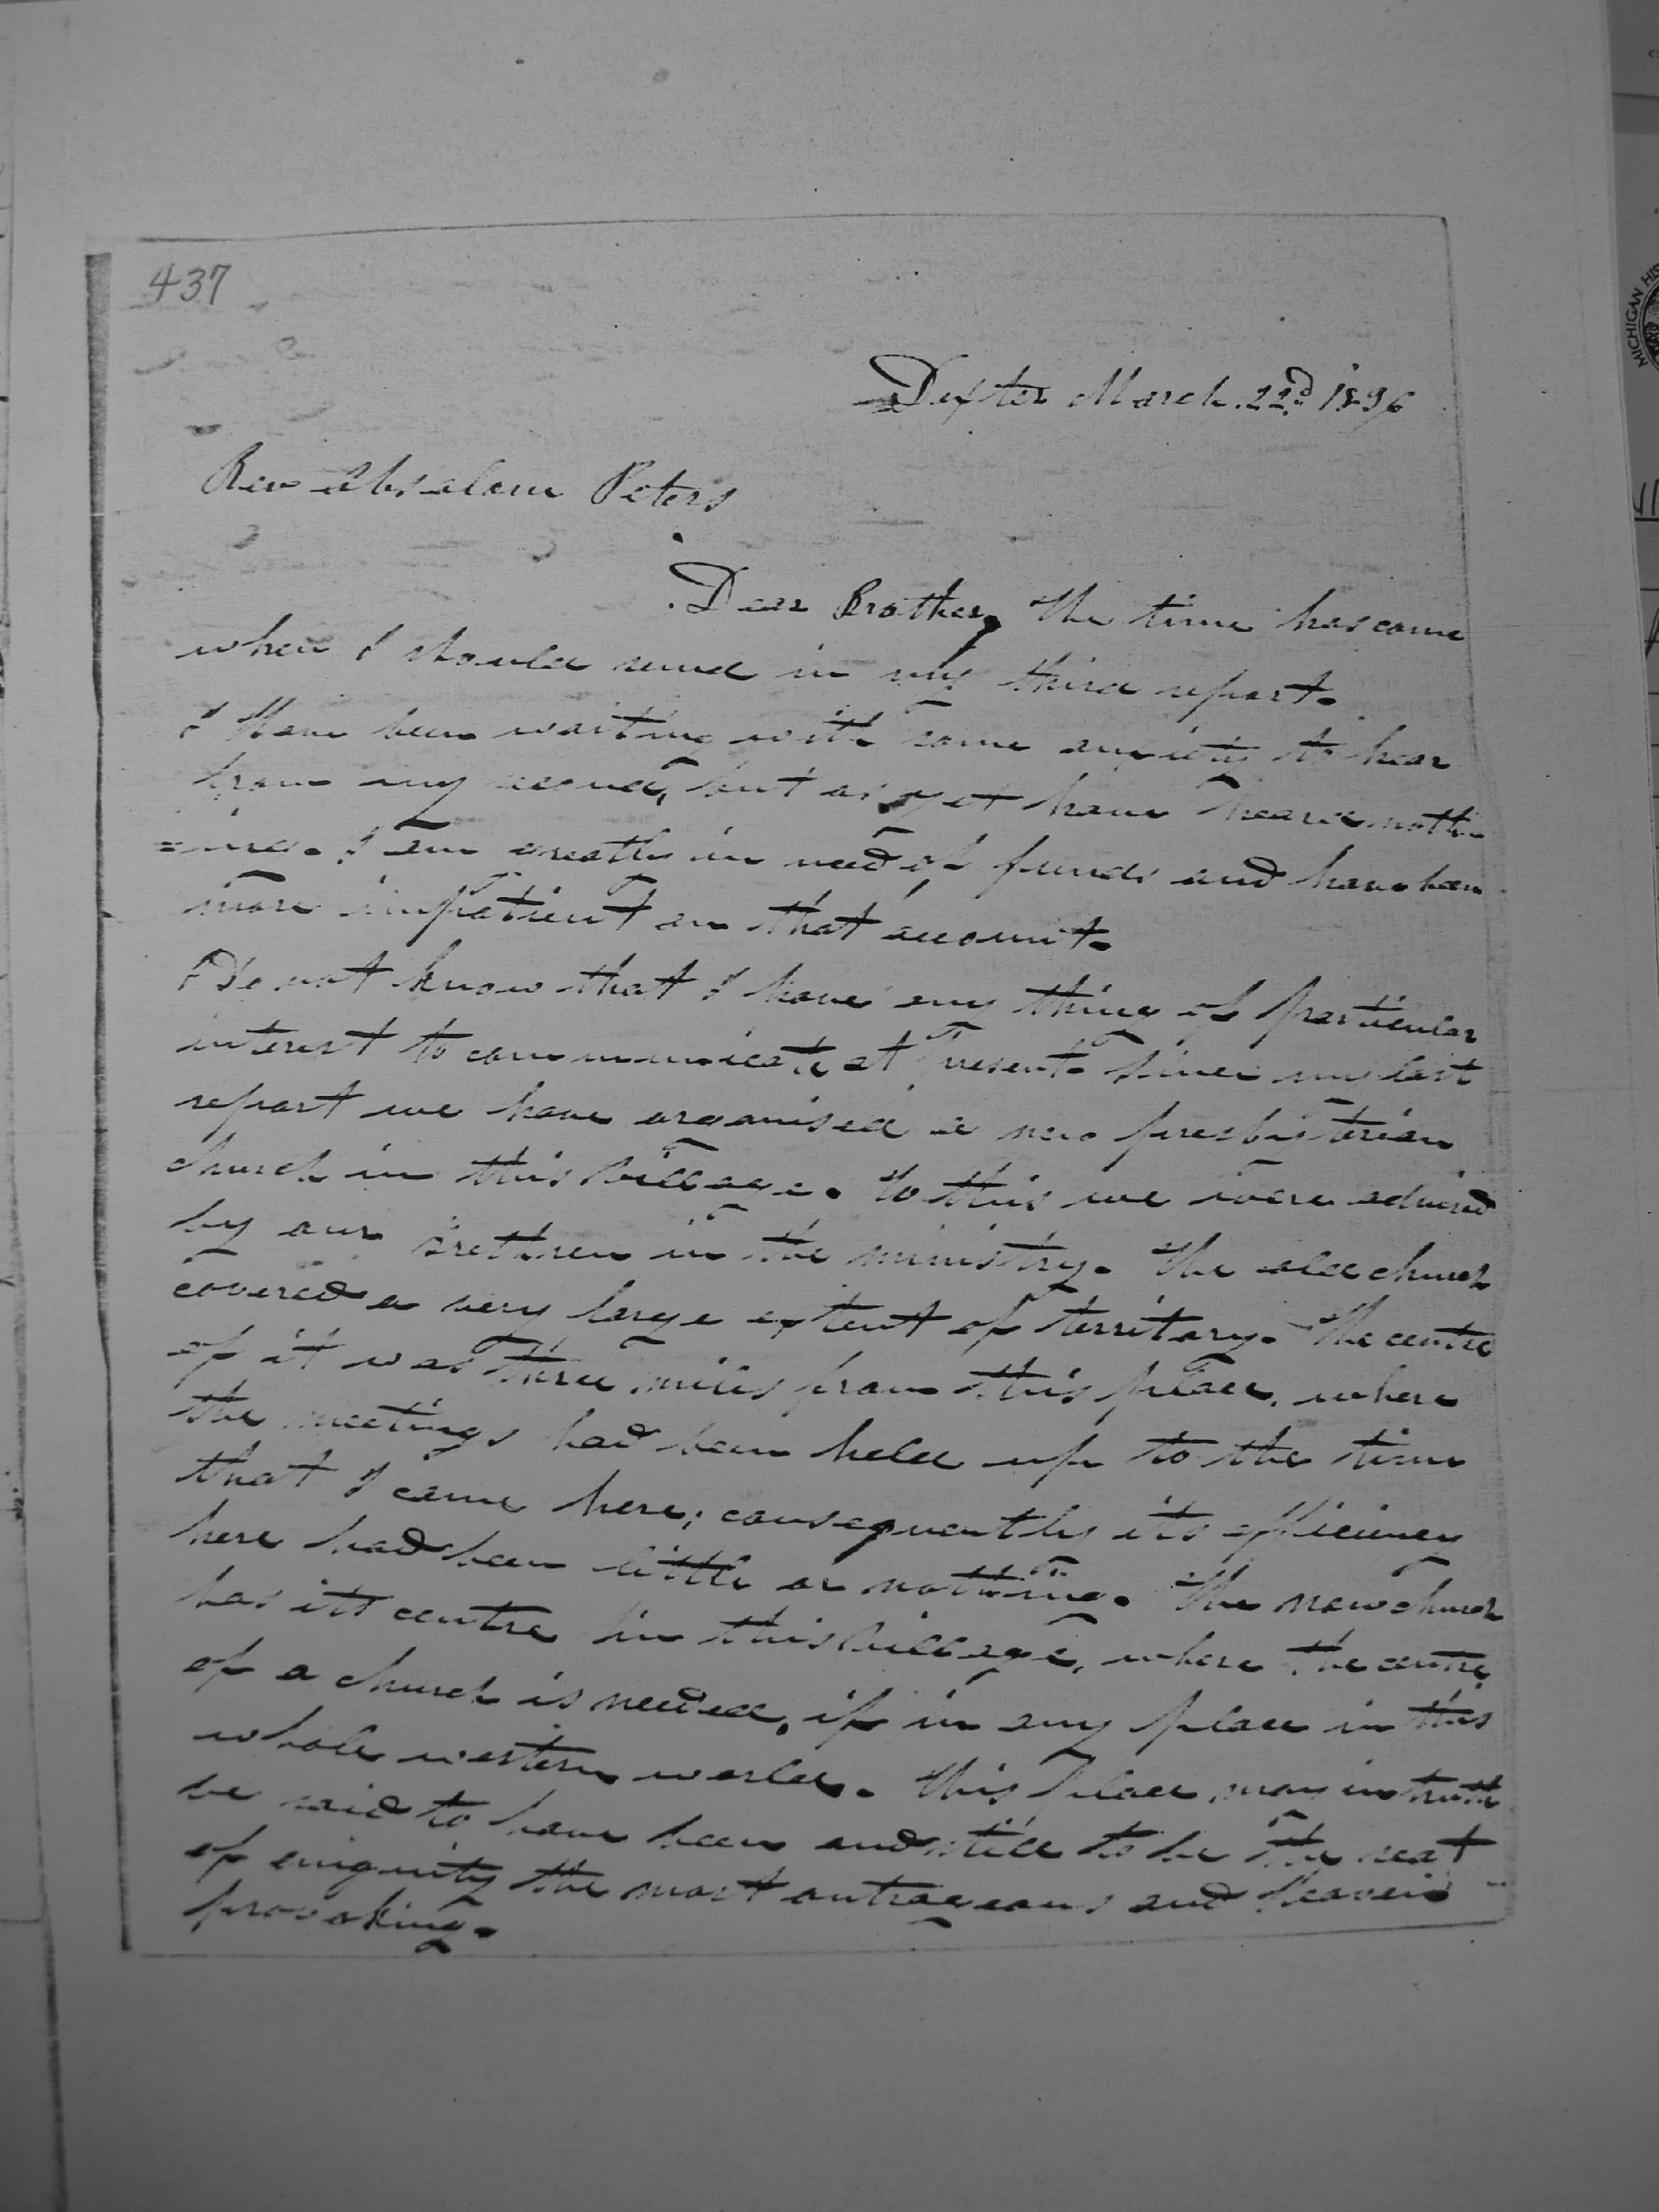 437
Dexter March. 22d. 1836
Rev Absalom Peters
Dear Brother, The time has come
when I should send in my third report.
I Have been waiting with some anxiety to hear
from my second, but as yet have heard noth
=ing. I am greatly in need of funds and have been
more impatient on that account.
I Do not know that I have any thing of particular
interest to communicate at present. Since my last
report we have organised a new presbyterian
church in this Village. To this we were advised
by our Brethren in the ministry. The old church
covered a very large extent of territory. The centre
of it was three miles from this place, where
the meetings had been held up to the time
that I came here; consequently its efficiency
here had been little or nothing. The new church
has its centre in this Village, where the centre
of a church is needed, if in any place in this
whole western world. This place may in truth
be said to have been and still to be the seat
of iniquity the most outrageous and Heaven
provoking.
MICHIGAN HIS